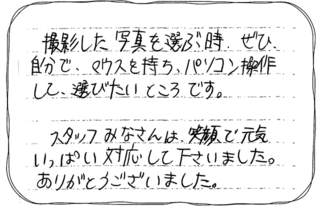 撮影した写真を選ぶ時、ぜひ、
自分で、マウスを持ち、パソコン操作
して、選びたいところです。
スタッフみなさんは、笑顔で元気
いっぱい対応して下さいました。
ありがとうございました。